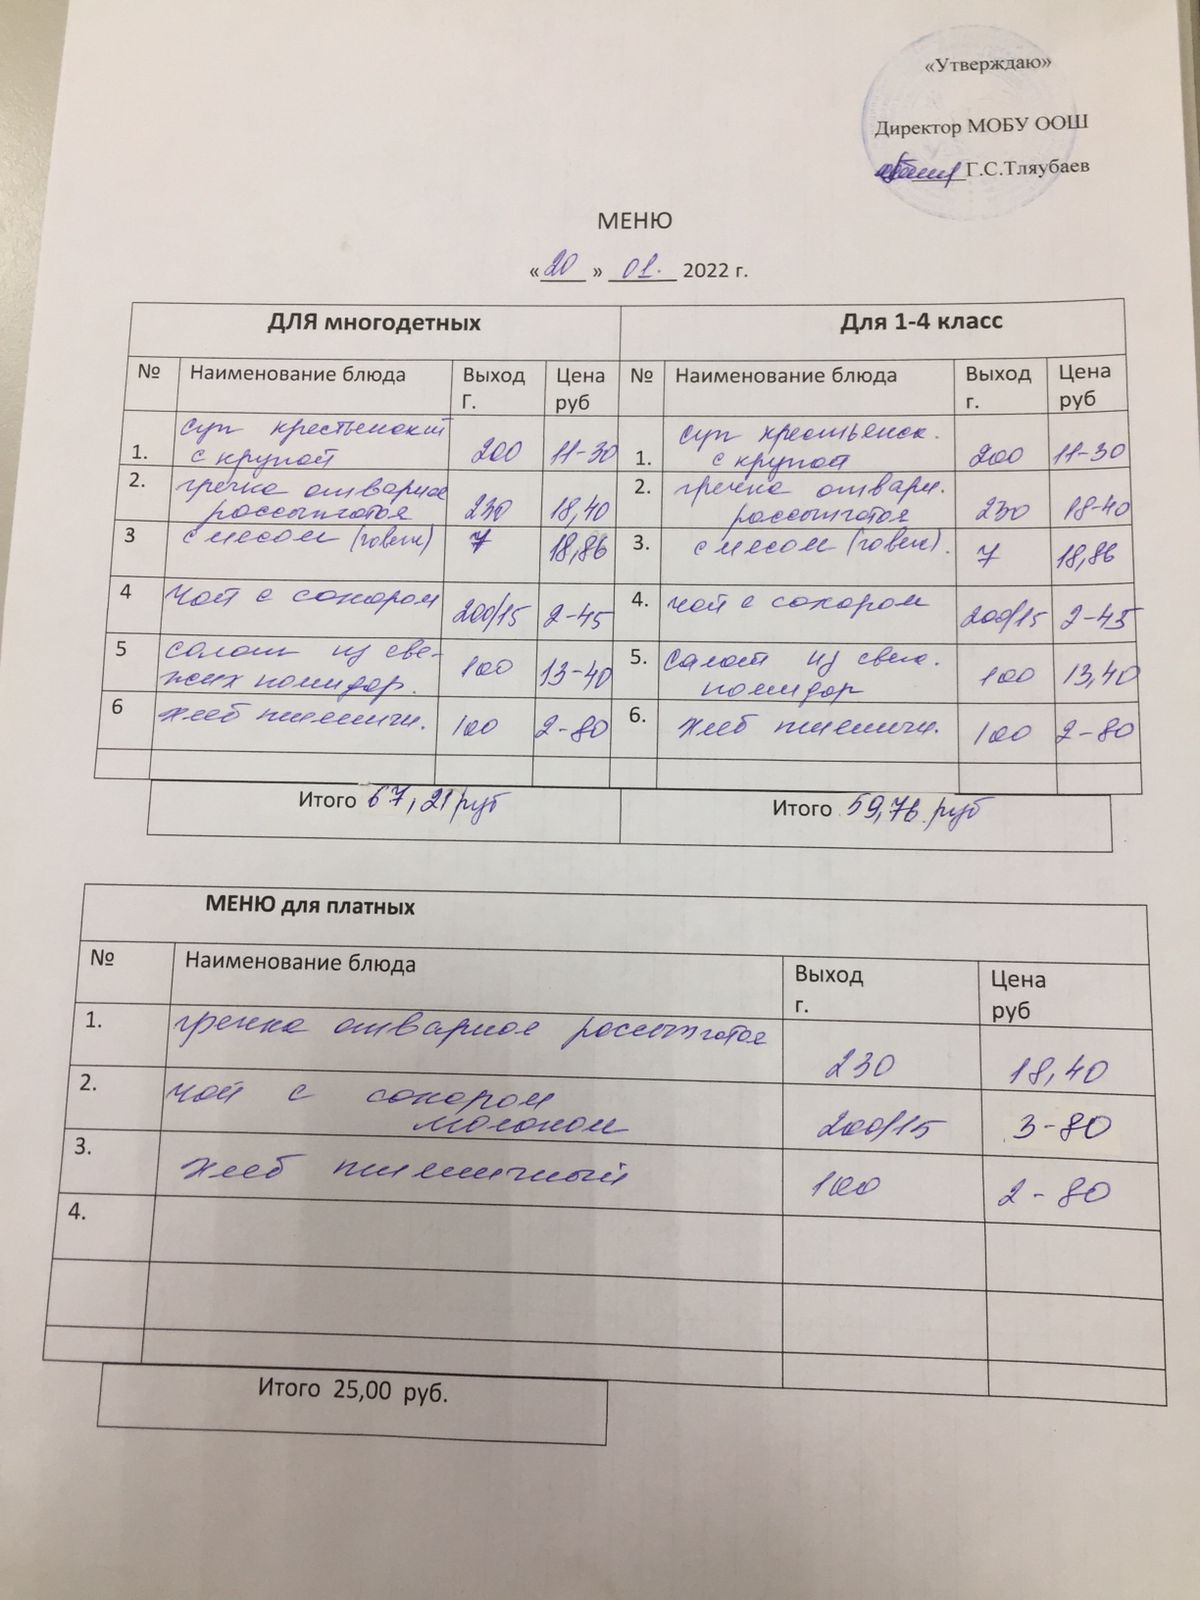 «Утверждаю»
Директор МОБУ ООШ
Г.С.Тляубаев
МЕНЮ
«20» 01. 2022 г.
ДЛЯ многодетных Для 1-4 класс
№ Наименование блюда Выход Г. Цена руб № Наименование блюда Выход г. Цена руб
1. суп крестьянский с крупой 200 11-30 1. суп крестьянск. с крупой 200 11-30
2. гречка отварная рассыпчатая 230 18,40 2. гречка отварн. рассыпчатая 230 18-40
3 с мясом (говян) 7 18,86 3. с мясом (говян). 7 18,86
4 чай с сахаром 200/15 2-45 4. чай с сахаром 200/15 2-45
5 салат из све-
жих помидор. 100 13-40 5. салат из свеж. помидор 100 13,40
6 хлеб пшеничн. 100 2-80 6. хлеб пшеничн. 100 2-80
Итого 67,21 руб Итого 59,76 руб
МЕНЮ для платных
№ Наименование блюда Выход г. Цена руб
1. гречка отварная рассыпчатая 230 18,40
2. чай с сахаром молоком 200/15 3-80
3. хлеб пшеничный 100 2-80
4.
Итого 25,00 руб.